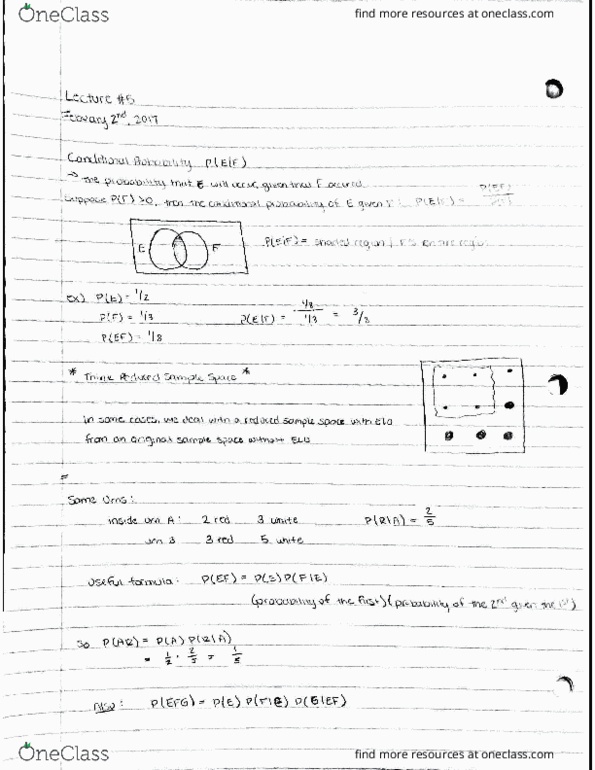 OneClass
find more resources at oneclass.com
Lecture #5
2nd, 2017
Conditional Probability P(E|F)
→ The probability that E will occur, given that F occured.
Suppose P(F) >0, then the conditional probability of E given F: P(E|F) = P(EF)/P(F)
E F P(E|F) = shaded region / F's entire region
ex) P(E) = 1/2
P(F) = 1/3 P(E|F) = 1/8 / 1/3 = 3/8
P(EF) = 1/8
* Think Reduced Sample Space *
in some cases, we deal with a reduced sample space with ELO
from an original sample space without ELO
=
Some Urns:
inside urn A: 2 red 3 white P(R|A) = 2/5
urn B 3 red 5 white
useful formula: P(EF) = P(E) P(F|E)
(probability of the first)(probability of the 2nd given the 1st)
So P(AR) = P(A) P(R|A)
= 1/2 · 2/5 = 1/5
Also: P(EFG) = P(E) P(F|E) P(G|EF)
OneClass
find more resources at oneclass.com